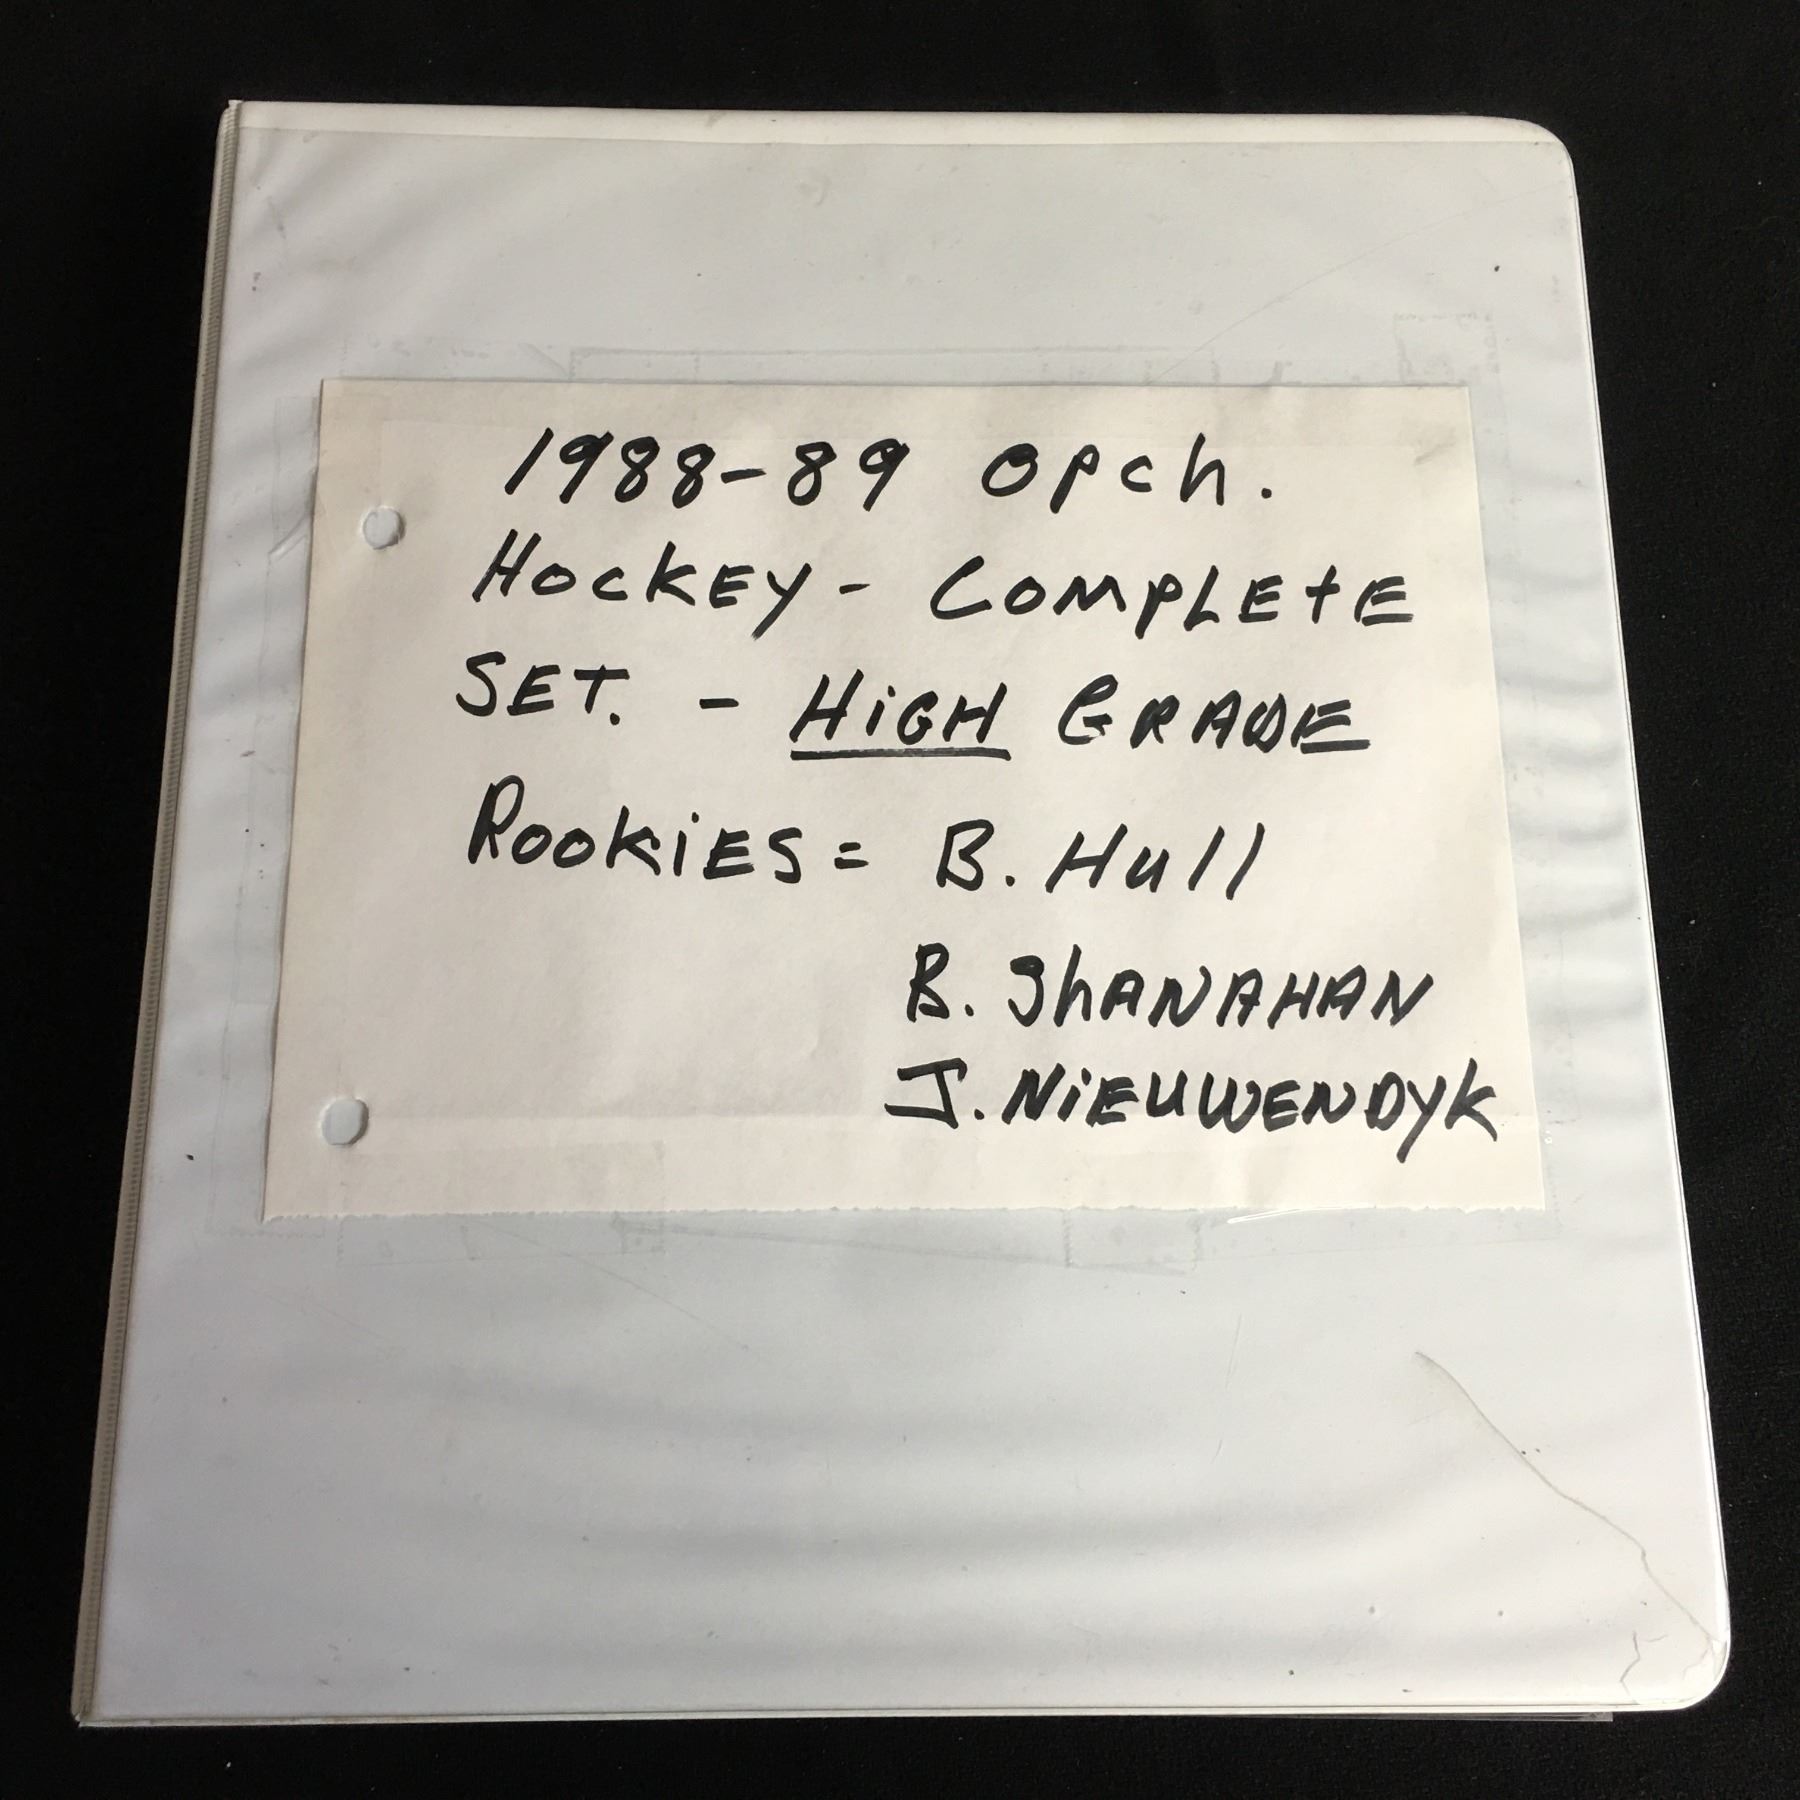 1988-89 Opch.
Hockey - Complete
Set. - High Grade
Rookies = B. Hull
B. Shanahan
J. Nieuwendyk